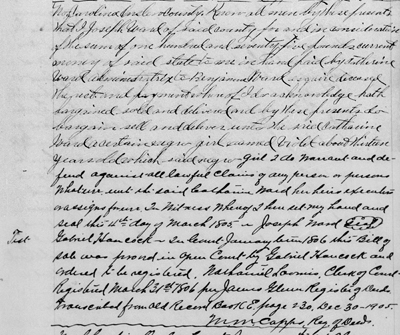 No Carolina County. Know all men by these presents
that I Joseph Ward of said county for and in consideration
of the sum of one hundred and seventy five pounds current
money of said state to me in hand paid by Catharine
Ward administratrix to Benjamin Ward esquire deceased
the receipt and payment whereof I do acknowledge hath
bargained sold and delivered and by these presents doth
bargain sell and deliver unto the said Catharine
Ward a certain negro girl named Violet about thirteen
years old which said negro girl I do warrant and de-
fend against all lawful claims of any person or persons
whatever unto the said Catharine Ward her heirs executors
or assigns forever In Witness Whereof I hereunto set my hand and
seal this 4th day of March 1805. Joseph Ward Seal
Test Gabriel Hancock — In Court January term 1806 this Bill of
sale was proved in Open Court by Gabriel Hancock and
ordered to be registered. Nathaniel Loomis, Clerk of Court
Registered March 31st 1806 per James Glenn Register of Deeds
transcribed from Old Record Book E, page 230, Dec 30-1905.
M M Capps, Reg of Deeds